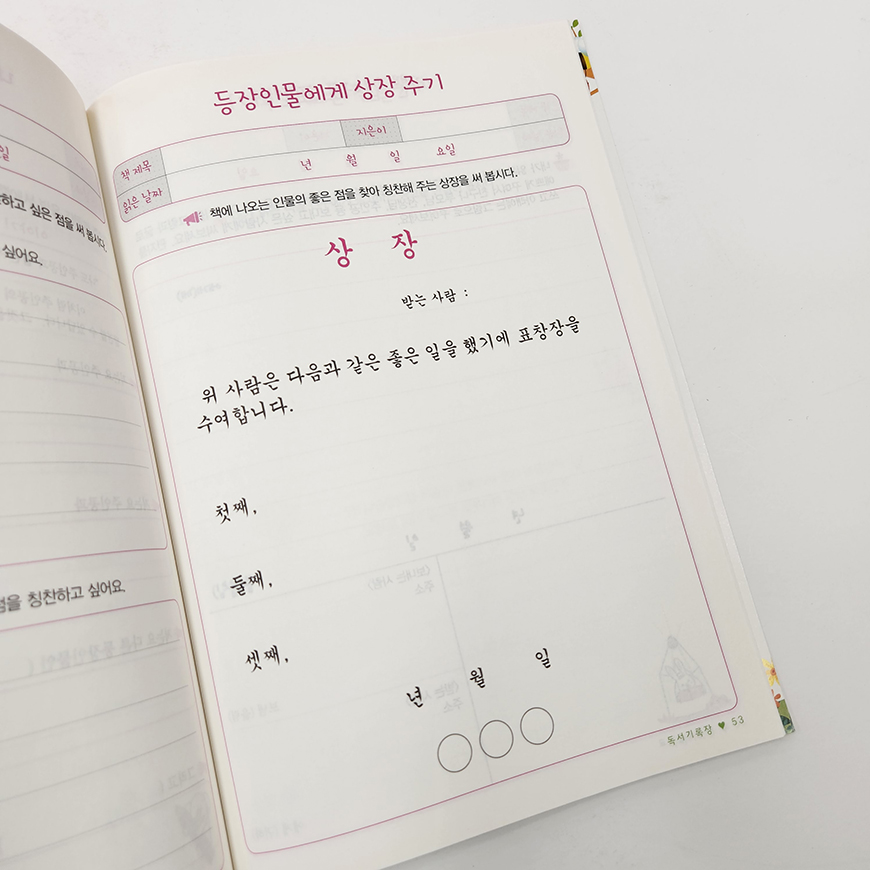 일
하고 싶은 점을 써 봅시다.
싶어요.
점을 칭찬하고 싶어요.
등장인물에게 상장 주기
책 제목
지은이
읽은 날짜
년 월 일 요일
책에 나오는 인물의 좋은 점을 찾아 칭찬해 주는 상장을 써 봅시다.
상 장
받는 사람 :
위 사람은 다음과 같은 좋은 일을 했기에 표창장을
수여합니다.
첫째,
둘째,
셋째,
년 월 일
독서기록장 ♥ 53